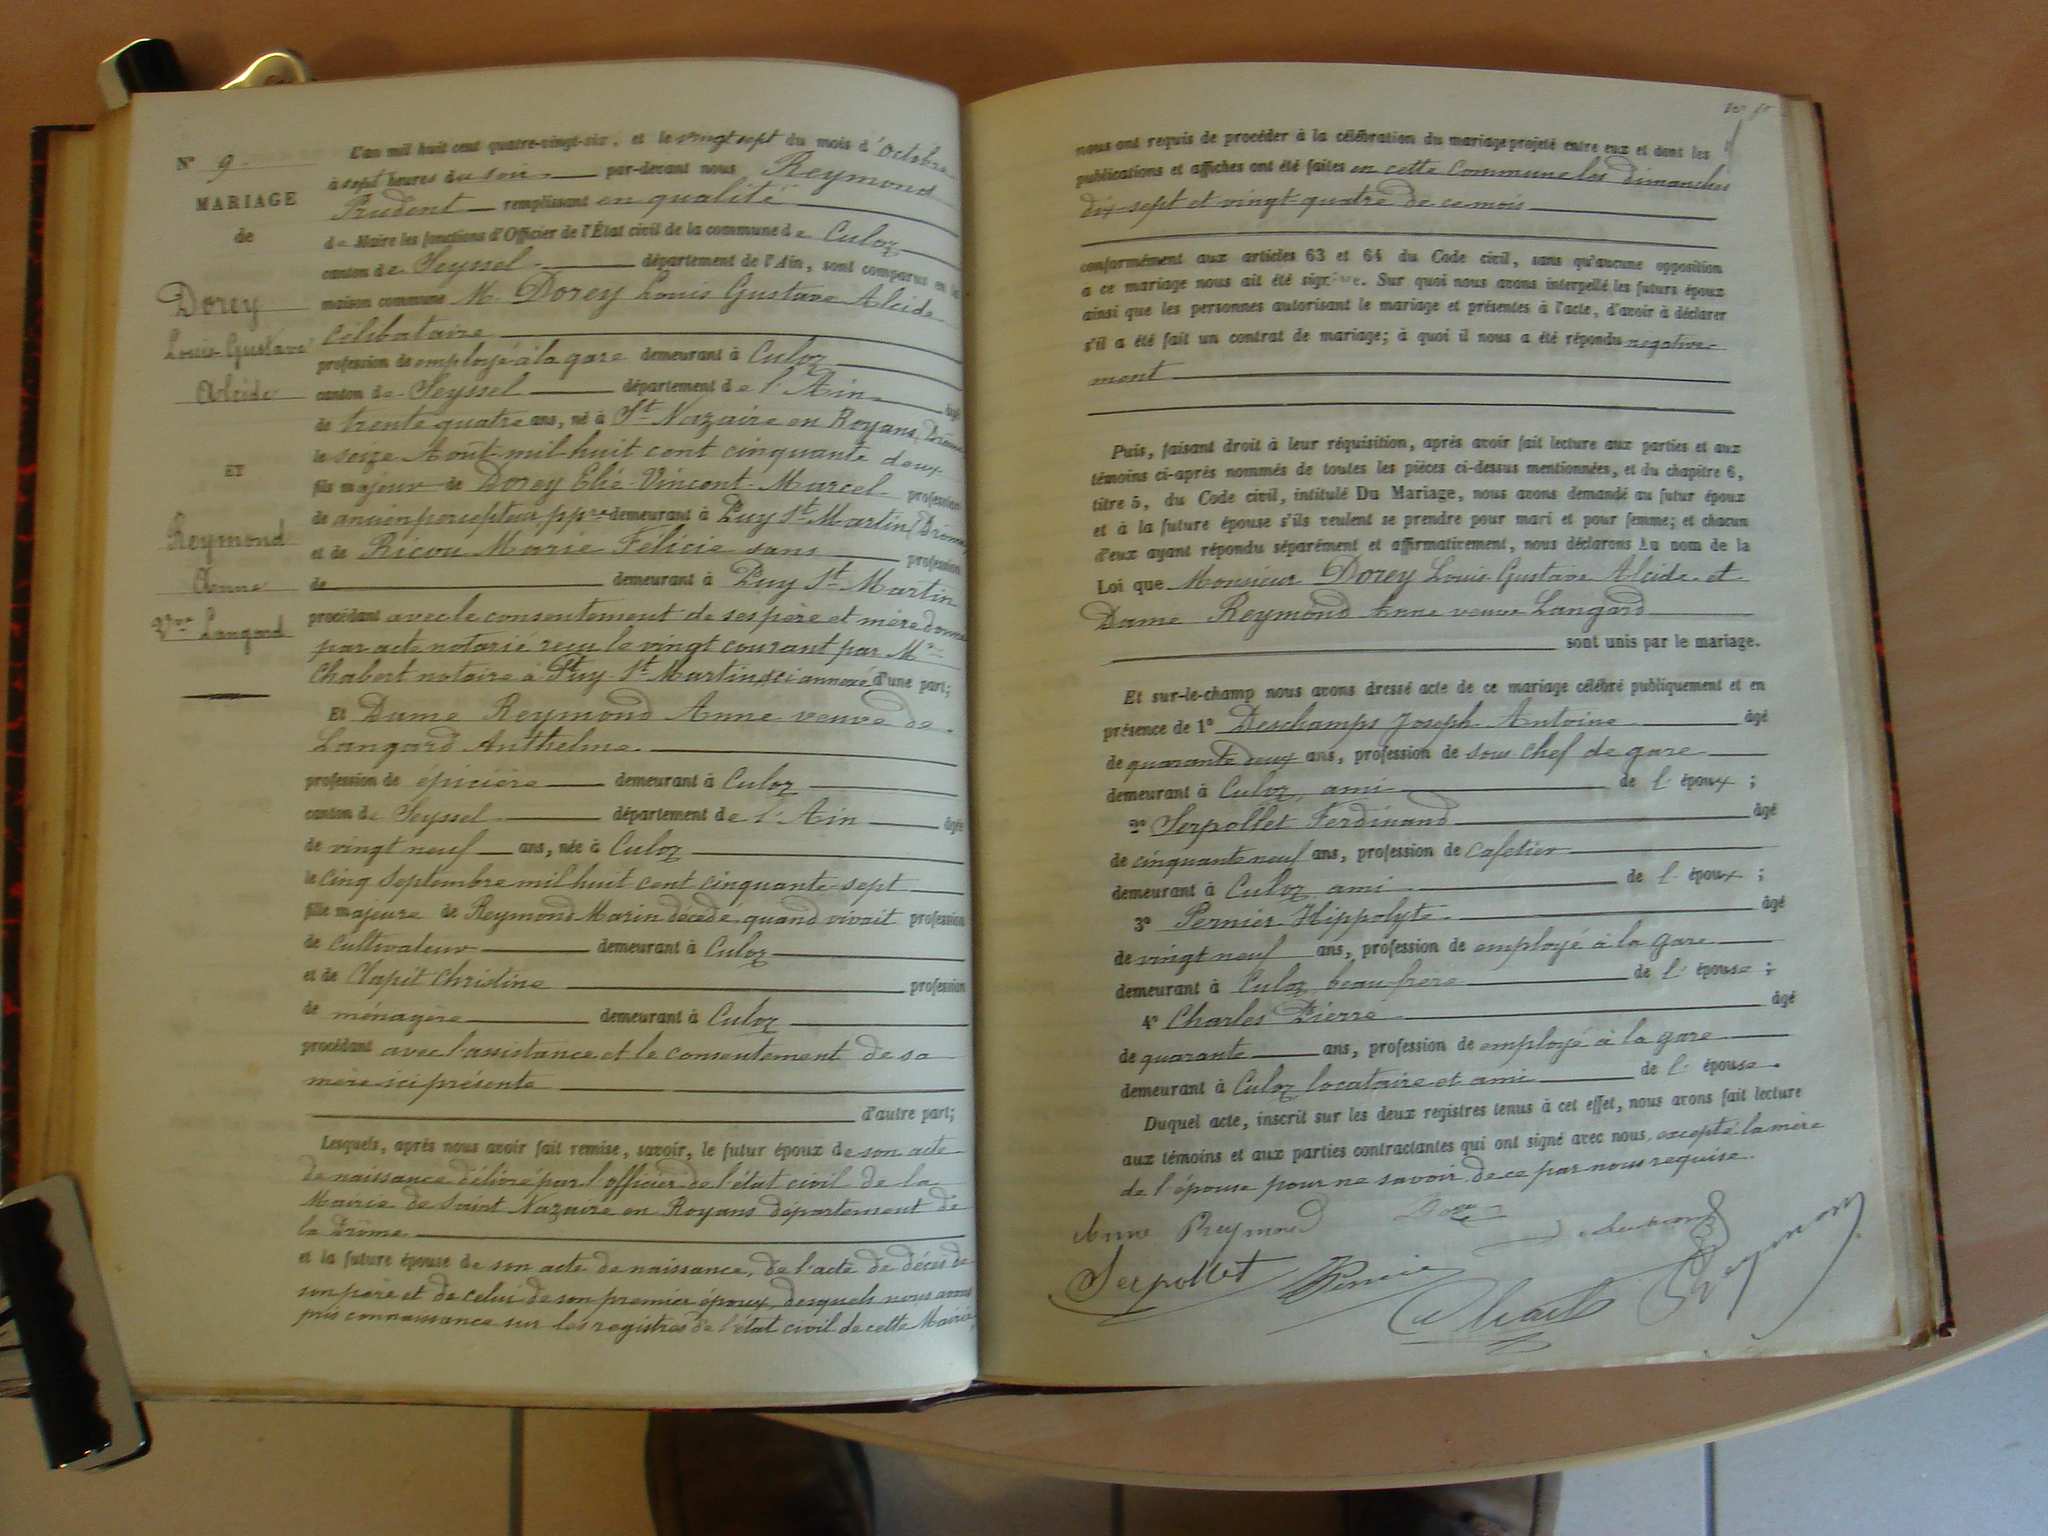 N° 9
MARIAGE
de
Dorey
Louis Gustave
Alcide
ET
Reymond
Anne
Vve Langard
L'an mil huit cent quatre-vingt-six, et le vingt sept du mois d'Octobre
à sept heures du soir par-devant nous Reymond
Prudent remplissant en qualité
de Maire les fonctions d'Officier de l'État civil de la commune de Culoz
canton de Seyssel département de l'Ain, sont comparus en la
maison commune M. Dorey Louis Gustave Alcide
Célibataire
profession de employé à la gare demeurant à Culoz
canton de Seyssel département de l'Ain âgé
de trente quatre ans, né à St Nazaire en Royans, Drôme
le seize Août mil huit cent cinquante deux
fils majeur de Dorey Elié Vincent Marcel profession
de ancien percepteur ppre demeurant à Puy St Martin (Drôme)
et de Ricou Marie Félicie sans profession
de demeurant à Puy St Martin
procédant avec le consentement de ses père et mère donné
par acte notarié reçu le vingt courant par Me
Chabert notaire à Puy St Martin, ici annexé d'une part;
Et Dame Reymond Anne veuve de
Langard Anthelme
profession de épicière demeurant à Culoz
canton de Seyssel département de l'Ain âgée
de vingt neuf ans, née à Culoz
le cinq Septembre mil huit cent cinquante sept
fille majeure de Reymond Marin décédé quand vivait profession
de cultivateur demeurant à Culoz
et de Clapit Christine profession
de ménagère demeurant à Culoz
procédant avec l'assistance et le consentement de sa
mère ici présente
d'autre part;
Lesquels, après nous avoir fait remise, savoir, le futur époux de son acte
de naissance délivré par l'officier de l'état civil de la
Mairie de Saint Nazaire en Royans département de
la Drôme
et la future épouse de son acte de naissance, de l'acte de décès de
son père et de celui de son premier époux, desquels nous avons
pris connaissance sur les registres de l'état civil de cette Mairie,
nous ont requis de procéder à la célébration du mariage projeté entre eux et dont les
publications et affiches ont été faites en cette Commune les dimanches
dix-sept et vingt quatre de ce mois
conformément aux articles 63 et 64 du Code civil, sans qu'aucune opposition
à ce mariage nous ait été signifiée. Sur quoi nous avons interpellé les futurs époux
ainsi que les personnes autorisant le mariage et présentes à l'acte, d'avoir à déclarer
s'il a été fait un contrat de mariage; à quoi il nous a été répondu negative-
ment
Puis, faisant droit à leur réquisition, après avoir fait lecture aux parties et aux
témoins ci-après nommés de toutes les pièces ci-dessus mentionnées, et du chapitre 6,
titre 5, du Code civil, intitulé Du Mariage, nous avons demandé au futur époux
et à la future épouse s'ils veulent se prendre pour mari et pour femme; et chacun
d'eux ayant répondu séparément et affirmativement, nous déclarons Au nom de la
Loi que Monsieur Dorey Louis Gustave Alcide et
Dame Reymond Anne veuve Langard
sont unis par le mariage.
Et sur-le-champ nous avons dressé acte de ce mariage célébré publiquement et en
présence de 1° Deschamps Joseph Antoine âgé
de quarante deux ans, profession de sous chef de gare
demeurant à Culoz, ami de l'époux;
2° Serpollet Ferdinand âgé
de cinquante neuf ans, profession de cafetier
demeurant à Culoz ami de l'époux;
3° Pernier Hippolyte âgé
de vingt neuf ans, profession de employé à la gare
demeurant à Culoz beau frère de l'épouse;
4° Charles Pierre âgé
de quarante ans, profession de employé à la gare
demeurant à Culoz locataire et ami de l'épouse.
Duquel acte, inscrit sur les deux registres tenus à cet effet, nous avons fait lecture
aux témoins et aux parties contractantes qui ont signé avec nous, excepté la mère
de l'épouse pour ne savoir de ce par nous requise.
Anne Reymond Dorey
Serpollet Pernier Reymond